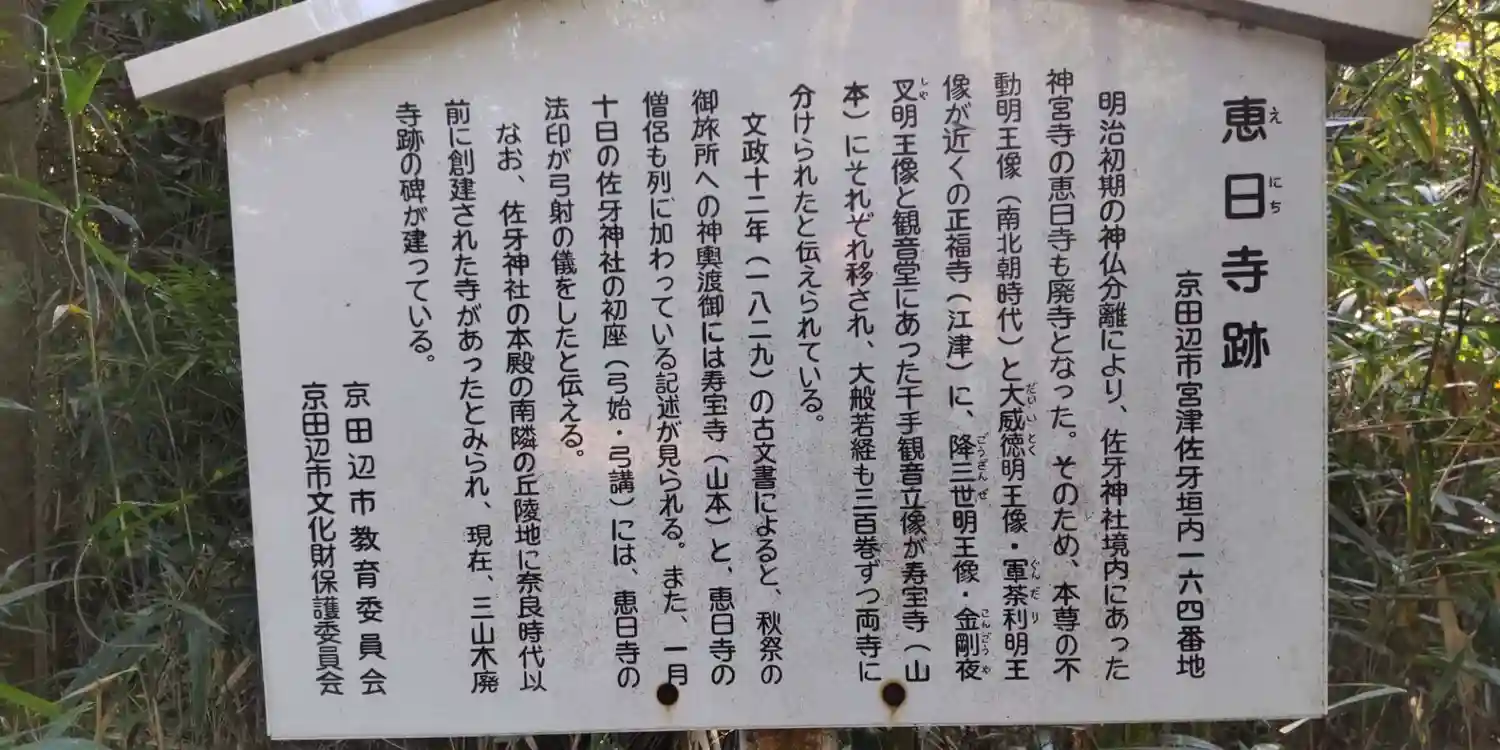 恵日寺跡
えにち
京田辺市宮津佐牙垣内一六四番地
明治初期の神仏分離により、佐牙神社境内にあった
神宮寺の恵日寺も廃寺となった。そのため、本尊の不
動明王像（南北朝時代）と大威徳明王像・軍荼利明王
だいいとく
ぐんだり
像が近くの正福寺（江津）に、降三世明王像・金剛夜
ごうざんぜ
こんごうや
叉明王像と観音堂にあった千手観音立像が寿宝寺（山
しや
本）にそれぞれ移され、大般若経も三百巻ずつ両寺に
分けられたと伝えられている。
文政十二年（一八二九）の古文書によると、秋祭の
御旅所への神輿渡御には寿宝寺（山本）と、恵日寺の
僧侶も列に加わっている記述が見られる。また、一月
十日の佐牙神社の初座（弓始・弓講）には、恵日寺の
法印が弓射の儀をしたと伝える。
なお、佐牙神社の本殿の南隣の丘陵地に奈良時代以
前に創建された寺があったとみられ、現在、三山木廃
寺跡の碑が建っている。
京田辺市教育委員会
京田辺市文化財保護委員会